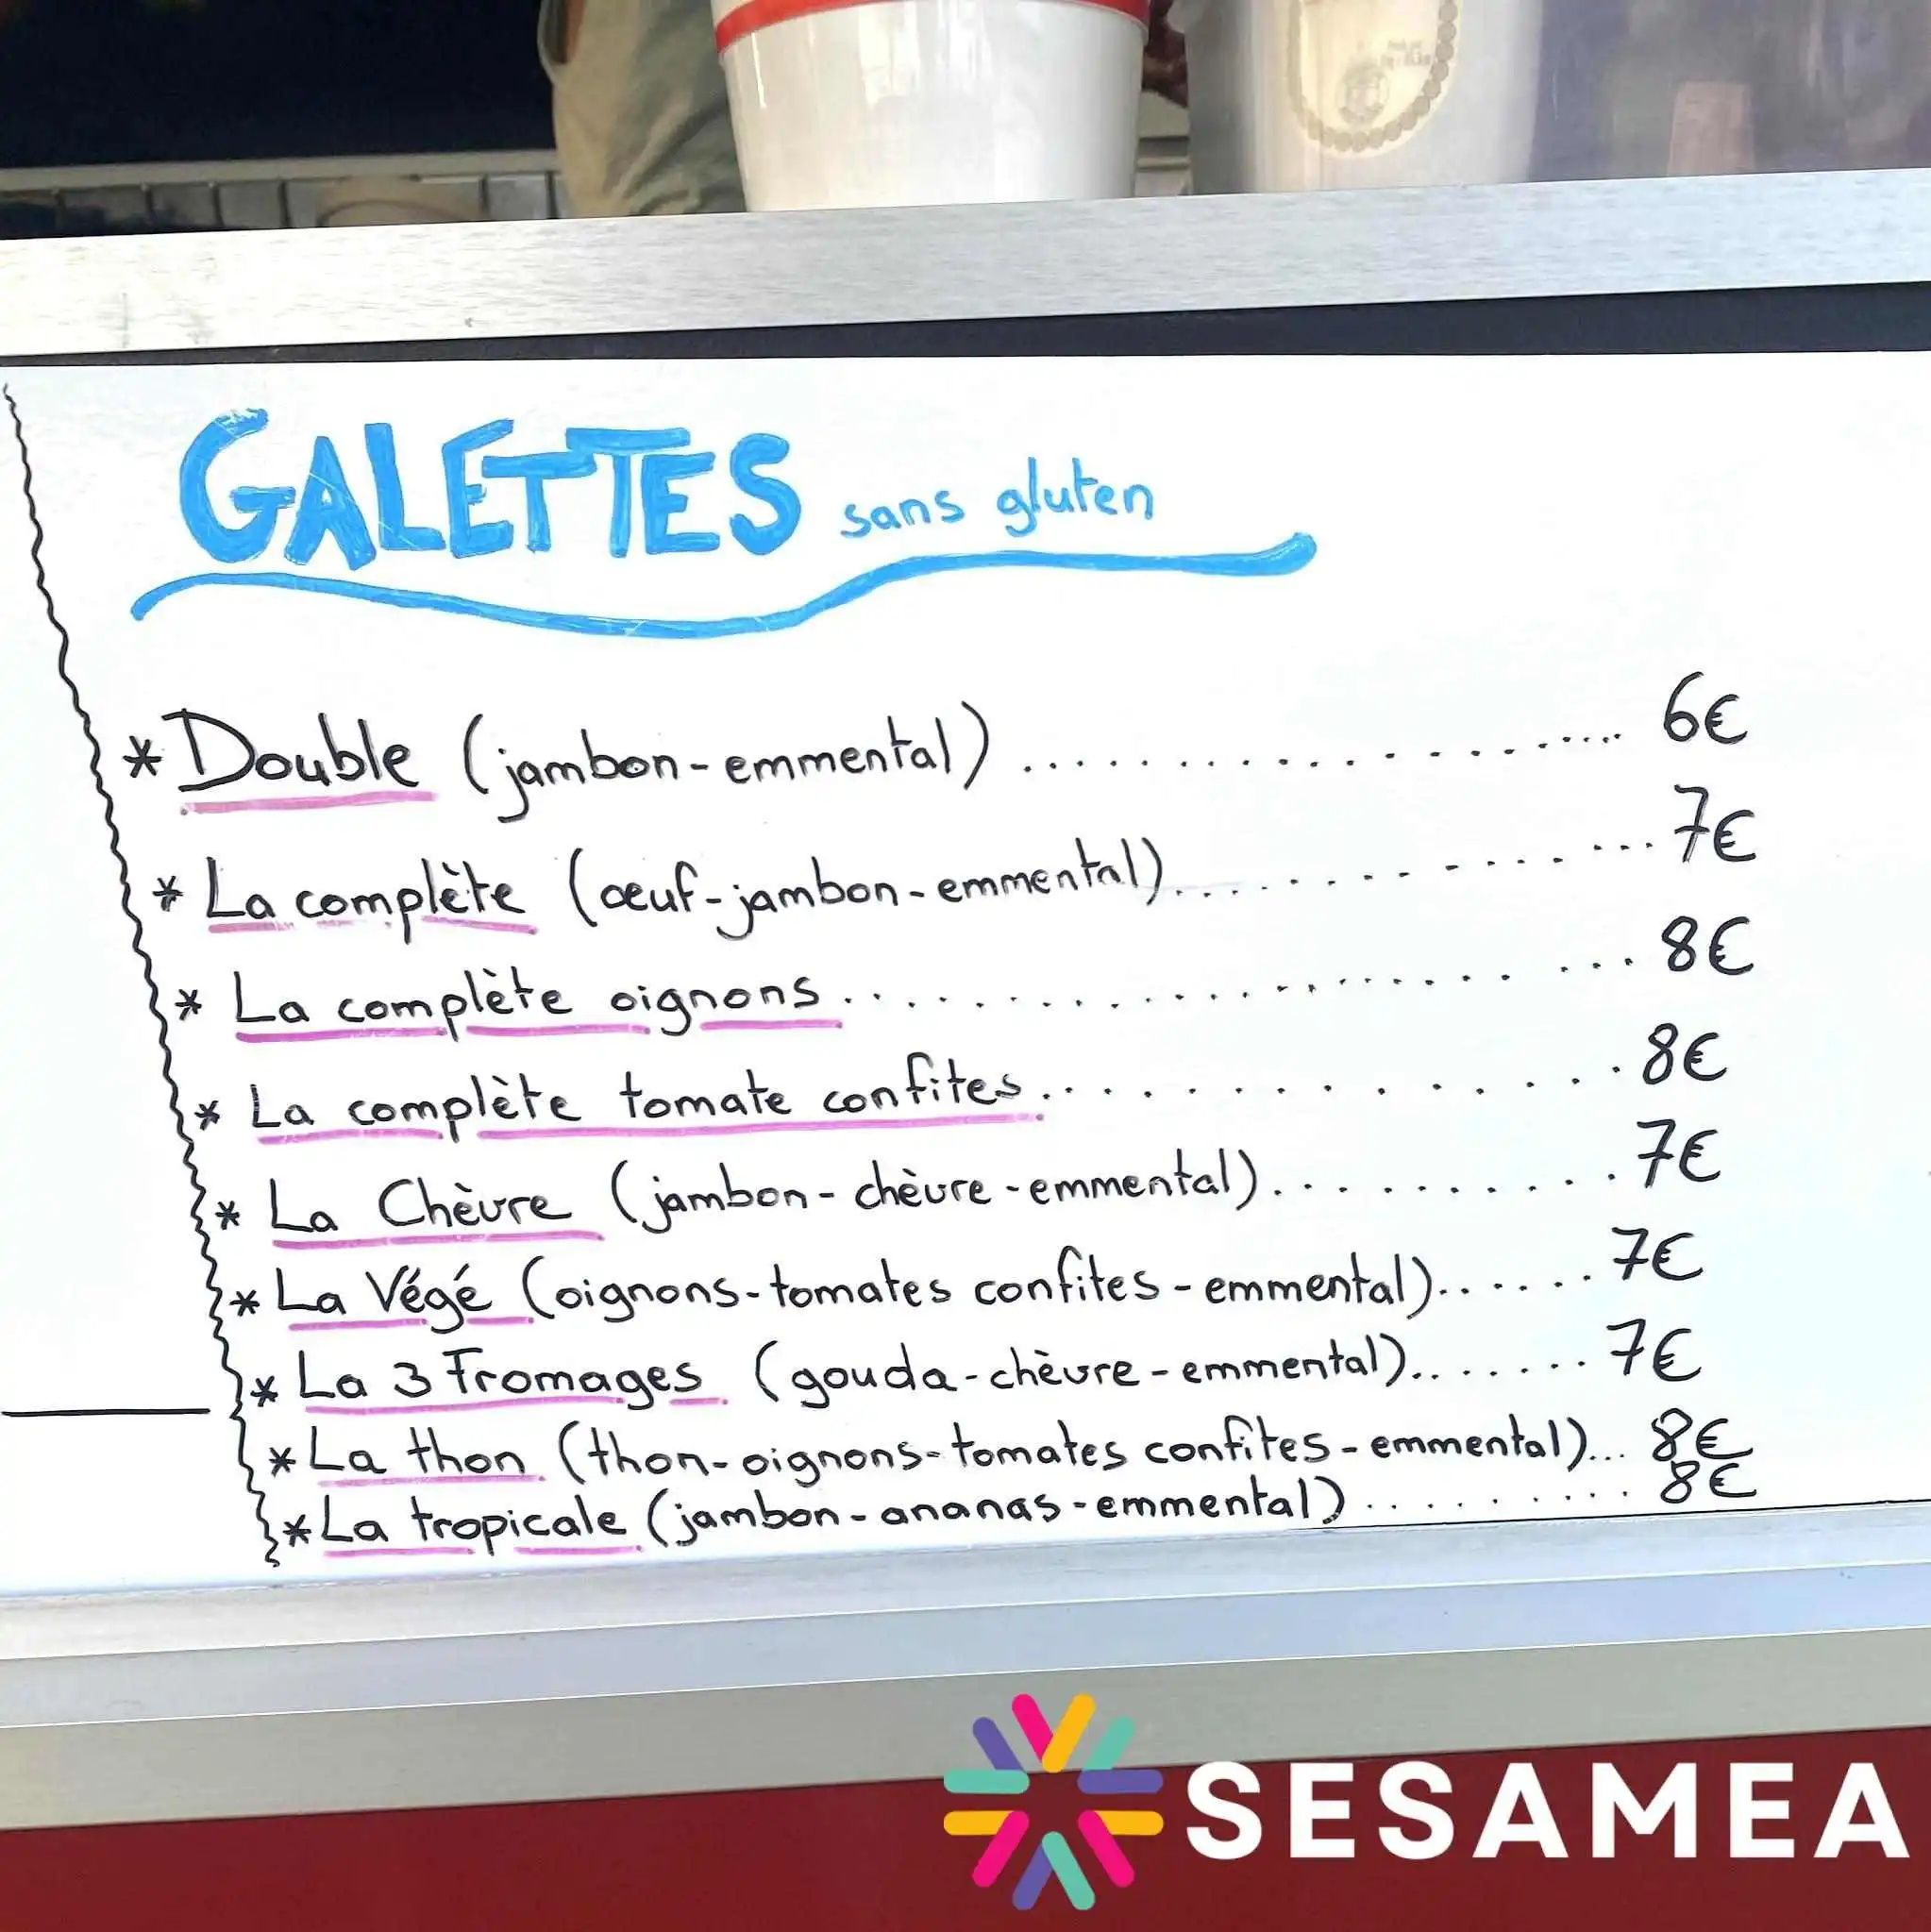 GALETTES sans gluten
* Double (jambon-emmental) .................... 6€
* La complète (œuf-jambon-emmental)................ 7€
* La complète oignons.................... 8€
* La complète tomate confites................ 8€
* La Chèvre (jambon-chèvre-emmental)............ 7€
* La Végé (oignons-tomates confites-emmental)....... 7€
* La 3 Fromages (gouda-chèvre-emmental)........ 7€
* La thon (thon-oignons-tomates confites-emmental)... 8€
* La tropicale (jambon-ananas-emmental).......... 8€
SESAMEA